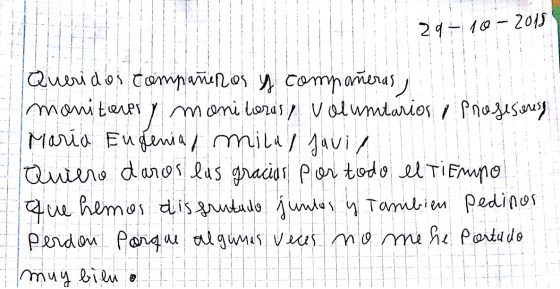 29-10-2018
Queridos compañeros y compañeras,
monitores, monitoras, Voluntarios, Profesores,
María Eugenia, Mila, Javi,
Quiero daros las gracias Por todo el TiEmpo
que hemos disfrutado juntos y Tambien Pediros
Perdon Porque algunas veces no me he Portado
muy bien.